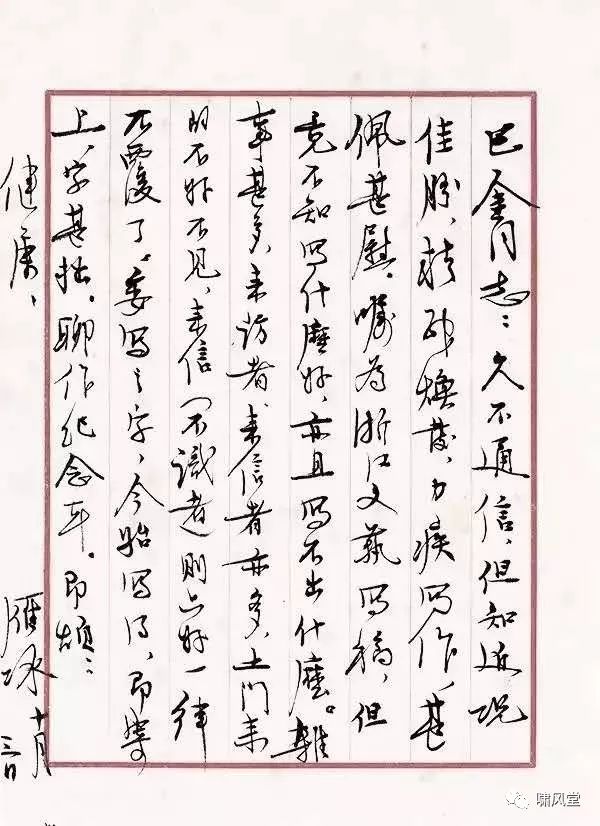 巴金同志：久不通信，但知近况
佳胜，精神焕发，力疾写作，甚
佩甚慰。嘱为浙江文艺写稿，但
竟不知写什麽好，亦且写不出什麽。杂
事甚多，来访者、来信者亦多，上门来
的不好不见，来信（不识者）则只好一律
不覆了。委写之字，今始写得，即寄
上，字甚拙，聊作纪念耳。即颂：
健康、
雁冰 十月
三日
啸风堂